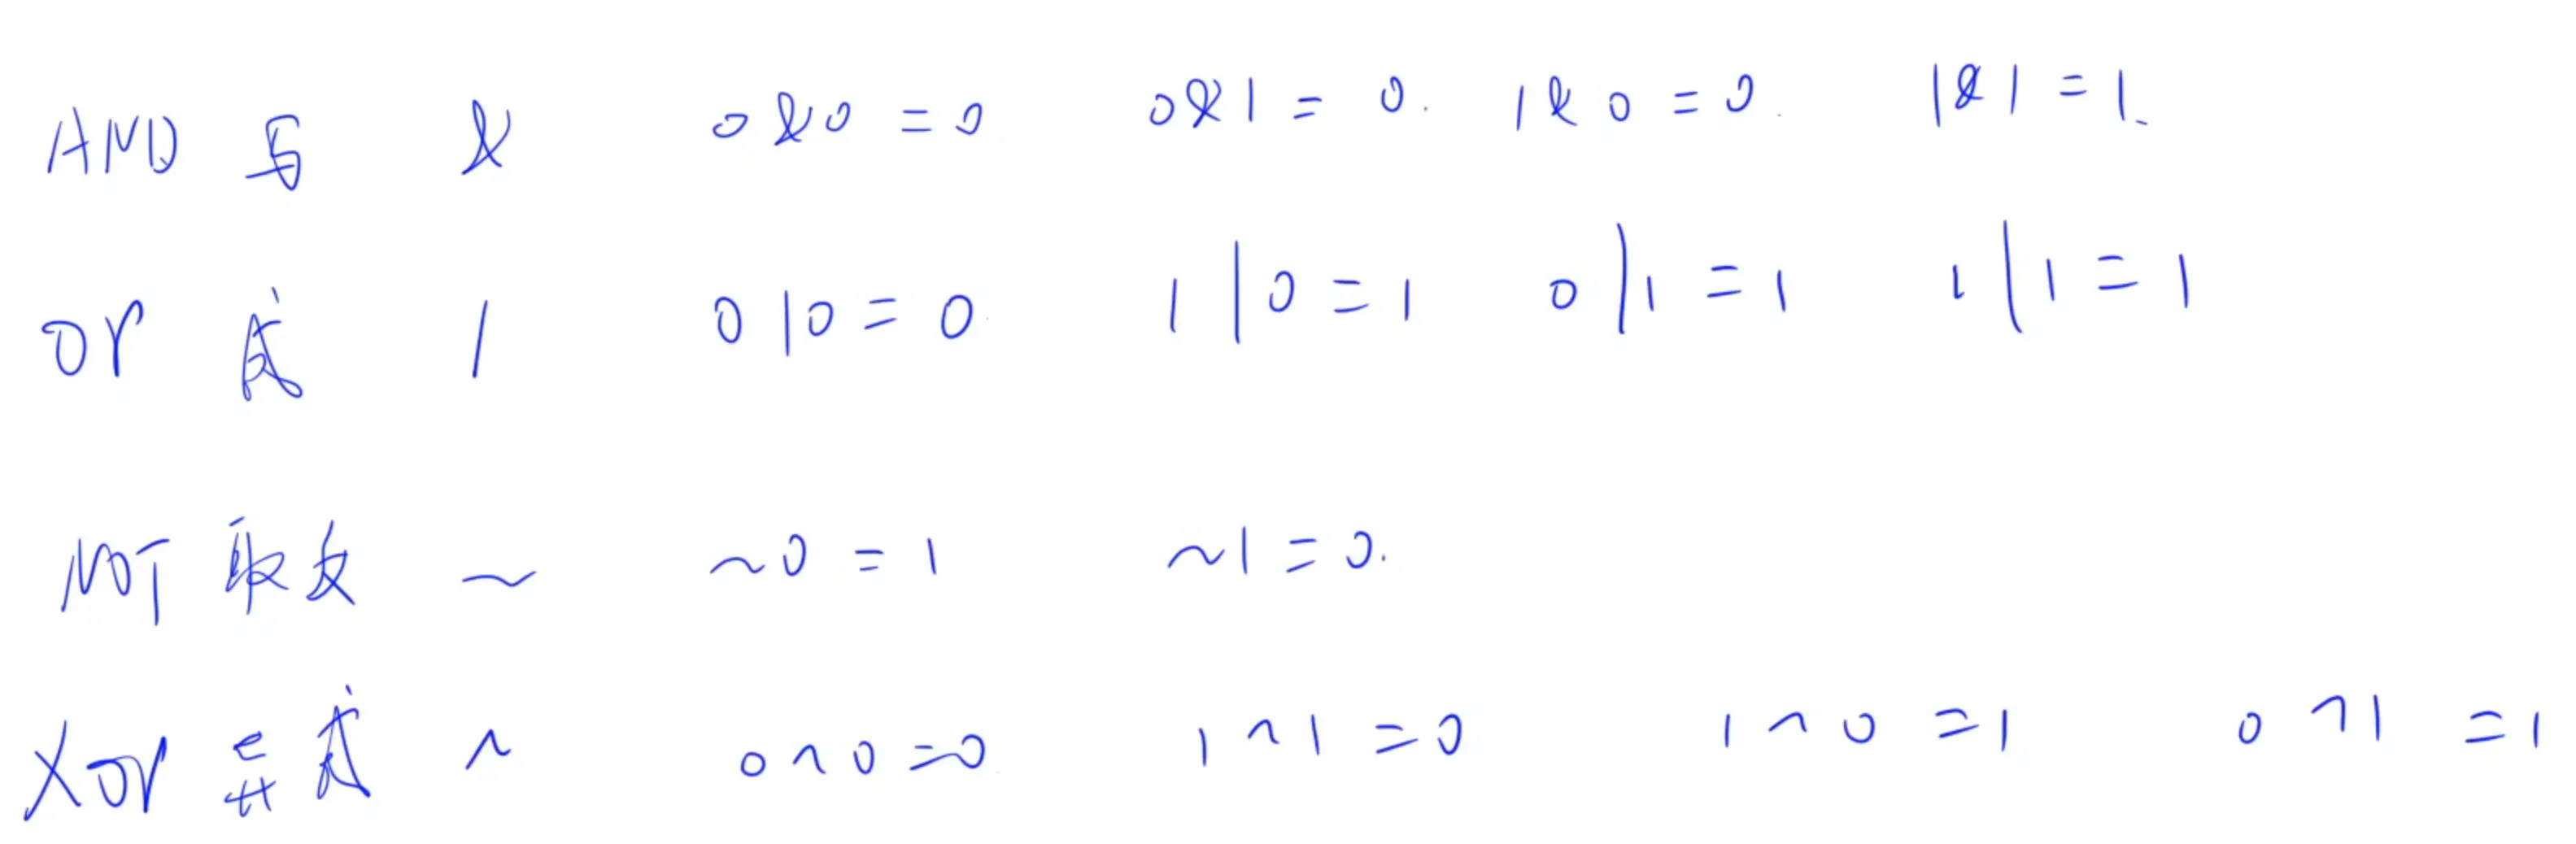 AND 与 & 0&0=0 0&1=0. 1&0=0. 1&1=1.
or 或 | 0|0=0 1|0=1 0|1=1 1|1=1
NOT 取反 ~ ~0=1 ~1=0.
Xor 异或 ^ 0^0=0 1^1=0 1^0=1 0^1=1